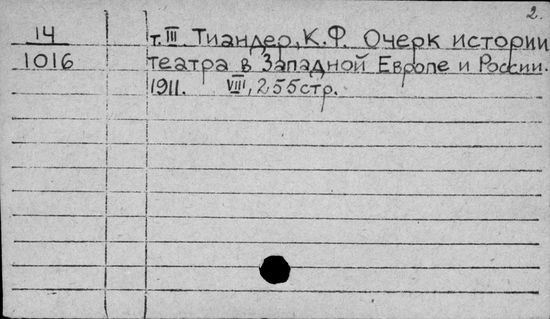 2.
14
т. III Тиандер, К.Ф. Очерк истории
1016
театра в Западной Европе и России.
1911. VIII, 255 стр.